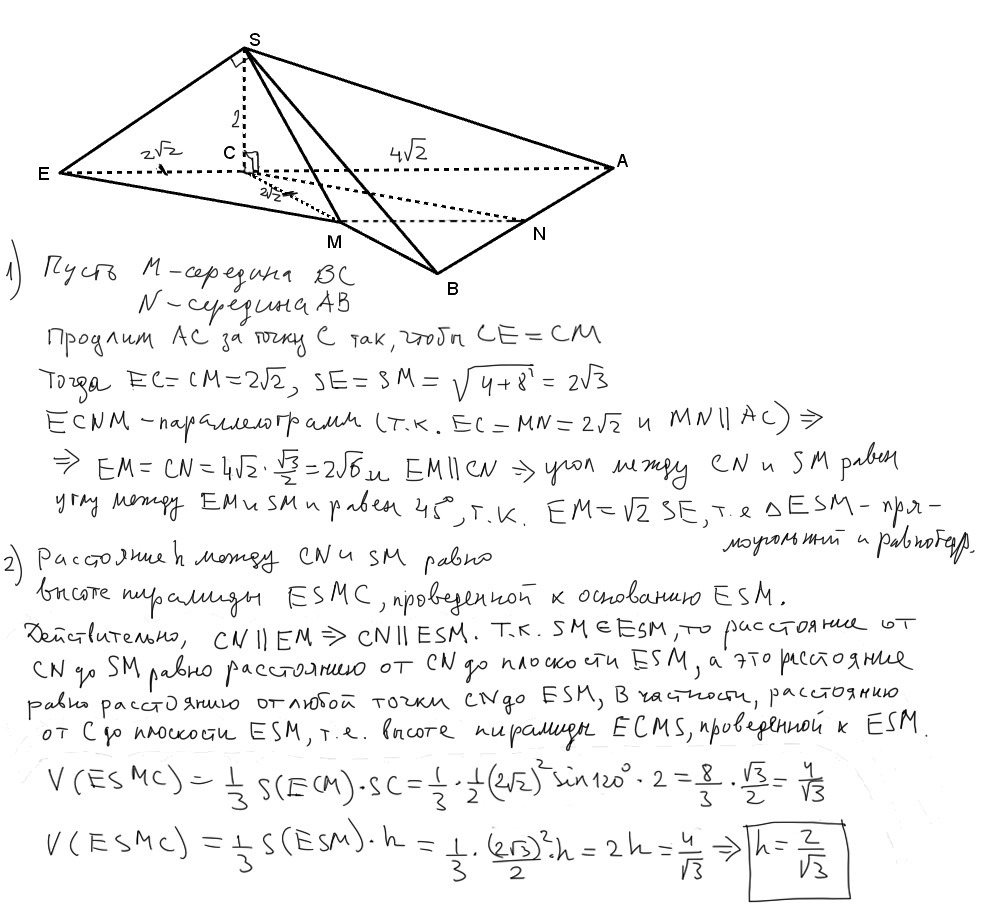 S
2
2√2
C
4√2
A
E
2√2
M
N
B
1) Пусть M – середина BC
N – середина AB
Продлим AC за точку C так, чтобы CE = CM
Тогда EC = CM = 2√2, SE = SM = √(4+8) = 2√3
ECNM – параллелограмм (т.к. EC = MN = 2√2 и MN || AC) ⇒
⇒ EM = CN = 4√2 · √3/2 = 2√6 и EM || CN ⇒ угол между CN и SM равен
углу между EM и SM и равен 45°, т.к. EM = √2 SE, т.е. △ESM – пря-
моугольный и равнобедр.
2) Расстояние h между CN и SM равно
высоте пирамиды ESMC, проведенной к основанию ESM.
Действительно, CN || EM ⇒ CN || ESM. Т.к. SM ∈ ESM, то расстояние от
CN до SM равно расстоянию от CN до плоскости ESM, а это расстояние
равно расстоянию от любой точки CN до ESM, в частности, расстоянию
от C до плоскости ESM, т.е. высоте пирамиды ECMS, проведенной к ESM.
V(ESMC) = 1/3 S(ECM) · SC = 1/3 · 1/2 (2√2)² sin120° · 2 = 8/3 · √3/2 = 4/√3
V(ESMC) = 1/3 S(ESM) · h = 1/3 · (2√3)²/2 · h = 2h = 4/√3 ⇒ h = 2/√3